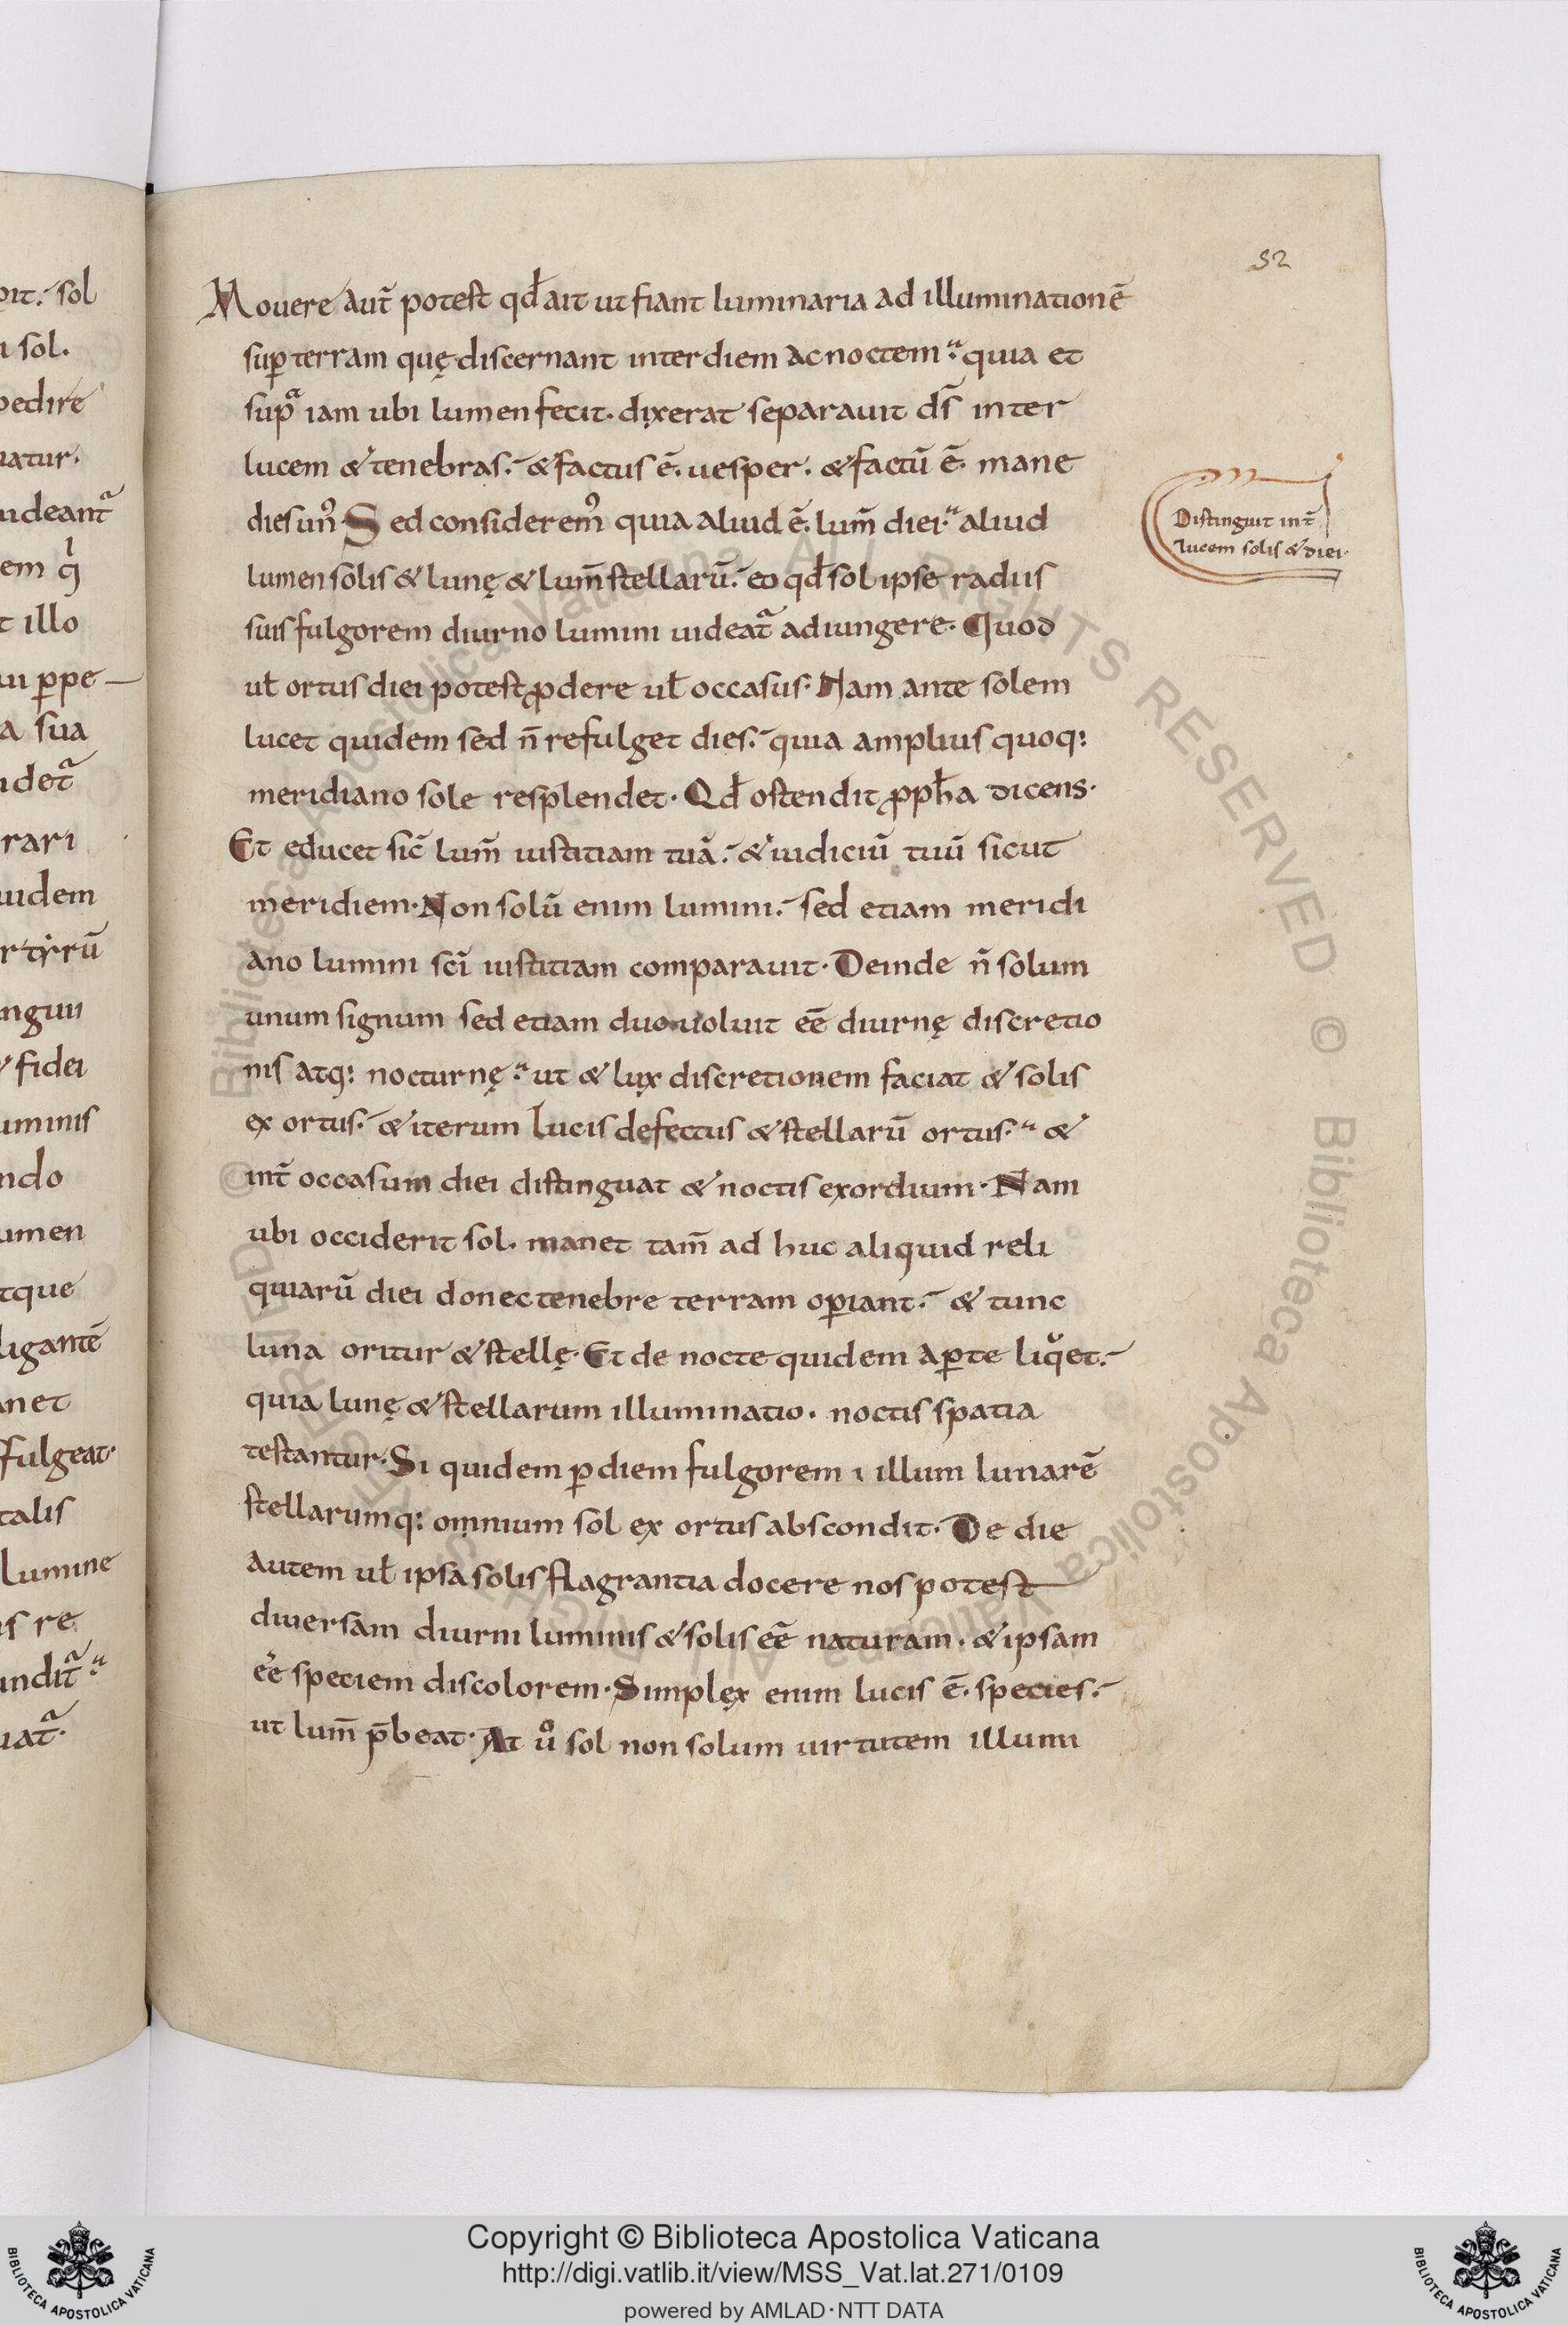 52
Mouere aut̄ potest qđ ait ut fiant luminaria ad illuminationē
sup̲ terram quę discernant inter diem ac noctem. quia et
sup̲ᵃ iam ubi lumen fecit. dixerat separauit ds̄ inter
lucem & tenebras. & factus ē. uesper. & factū ē. mane
dies un᾿. Sed considerem᾿ quia aliud ē. lum̄ diei. aliud
lumen solis & lunę & lum̄ stellarū. eo qđ sol ipse radiis
suis fulgorem diurno lumini uideat᾿ adiungere. Quod
ul̄ ortus diei potest ꝓdere ul̄ occasus. Nam ante solem
lucet quidem sed n̄ refulget dies. quia amplius quoq:
meridiano sole resplendet. Qđ ostendit ꝓph̄a dicens.
Et educet sic̄ lum̄ iustitiam tuā. & iudiciū tuū sicut
meridiem. Non solū enim lumini. sed etiam meridi
ano lumini sc̄i iustitiam comparauit. Deinde n̄ solum
unum signum sed etiam duo uoluit eē diurnę discretio
nis atq: nocturnę. ut & lux discretionem faciat & solis
ex ortus. & iterum lucis defectus & stellarū ortus. &
int̄ occasum diei distinguat & noctis exordium. Nam
ubi occiderit sol. manet tam̄ ad huc aliquid reli
quiarū diei donec tenebre terram oꝑiant. & tunc
luna oritur & stellę. Et de nocte quidem aꝑte liqͧet.
quia lunę & stellarum illuminatio. noctis spatia
testantur. Si quidem ꝑ diem fulgorem i illum lunarē
stellarumq: omnium sol ex ortus abscondit. De die
autem ul̄ ipsa solis flagrantia docere nos potest
diuersam diurni luminis & solis eē naturam. & ipsam
eē speciem discolorem. Simplex enim lucis ē. species.
ut lum̄ p̄beat. At uͦ sol non solum uirtutem illumi
Distinguit int̄
lucem solis & diei.
oit. sol
i sol.
pedire
natur.
uideant᾿
em qͥ
t illo
ui ꝑpe
a sua
idet᾿
rari
uidem
r tẏrū
nguii
& fidei
uminis
ndo
umen
tque
ligantē
anet
fulgeat.
talis
lumine
is re
undit᾿.
uat᾿.
© Biblioteca Apostolica Vaticana ALL RIGHTS RESERVED © Biblioteca Apostolica Vaticana ALL RIGHTS RESERVED
BIBLIOTECA APOSTOLICA VATICANA
Copyright © Biblioteca Apostolica Vaticana
http://digi.vatlib.it/view/MSS_Vat.lat.271/0109
powered by AMLAD·NTT DATA
BIBLIOTECA APOSTOLICA VATICANA